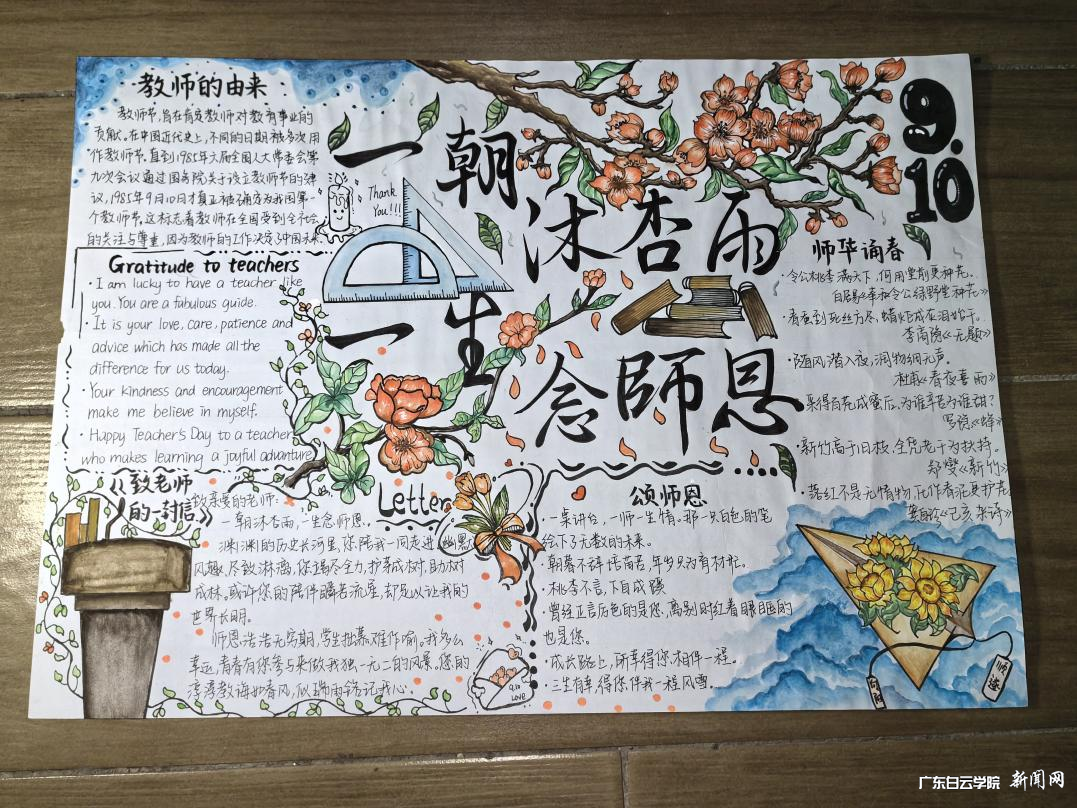 教师的由来
教师节,旨在肯定教师对教育事业的
贡献。在中国近代史上,不同的日期被多次用
作教师节。直到1985年六届全国人大常委会第
九次会议通过国务院关于设立教师节的建
议,1985年9月10日才真正被确定为我国第一
个教师节。这标志着教师在全国受到全社会
的关注与尊重,因为教师的工作决定了中国未来.
Thank
You!!!
一朝
沐杏雨
一生
念師恩
9.
10
Gratitude to teachers
· I am lucky to have a teacher like
you. You are a fabulous guide.
· It is your love, care, patience and
advice which has made all the
difference for us today.
· Your kindness and encouragement
make me believe in myself.
· Happy Teacher's Day to a teacher
who makes learning a joyful advanture
师华诵春
·令公桃李满天下,何用堂前更种花。
白居易《奉和令公绿野堂种花》
·春蚕到死丝方尽,蜡炬成灰泪始干。
李商隐《无题》
·随风潜入夜,润物细无声。
杜甫《春夜喜雨》
采得百花成蜜后,为谁辛苦为谁甜?
罗隐《蜂》
·新竹高于旧枝,全凭老干为扶持。
郑燮《新竹》
·落红不是无情物,化作春泥更护花
龚自珍《己亥杂诗》
《致老师
的一封信》
Letter
致亲爱的老师:
一朝沐杏雨,一生念师恩。
渊渊的历史长河里,您陪我一同走进,幽默
风趣,尽致淋漓,您竭尽全力,护苗成树,助树
成林。或许您的陪伴瞬若流星,却足以让我的
世界长明。
师恩浩浩无穷期,学生拙慕难作喻。我多么
幸运,青春有您参与来做我独一无二的风景,您的
谆谆教诲如春风,似瑞雨铭记我心。
9.10
LOVE
颂师恩
·一桌讲台,一师一生情。那一只白色的笔
绘下了无数的未来。
朝暮不辞语苦,年岁只为育材忙。
·桃李不言,下自成蹊
·曾经正言厉色的是您,离别时红着眼眶的
也是您。
·成长路上,所幸得您相伴一程。
·三生有幸,得你伴我一程风雪.
顺遂
广东白云学院 新闻网